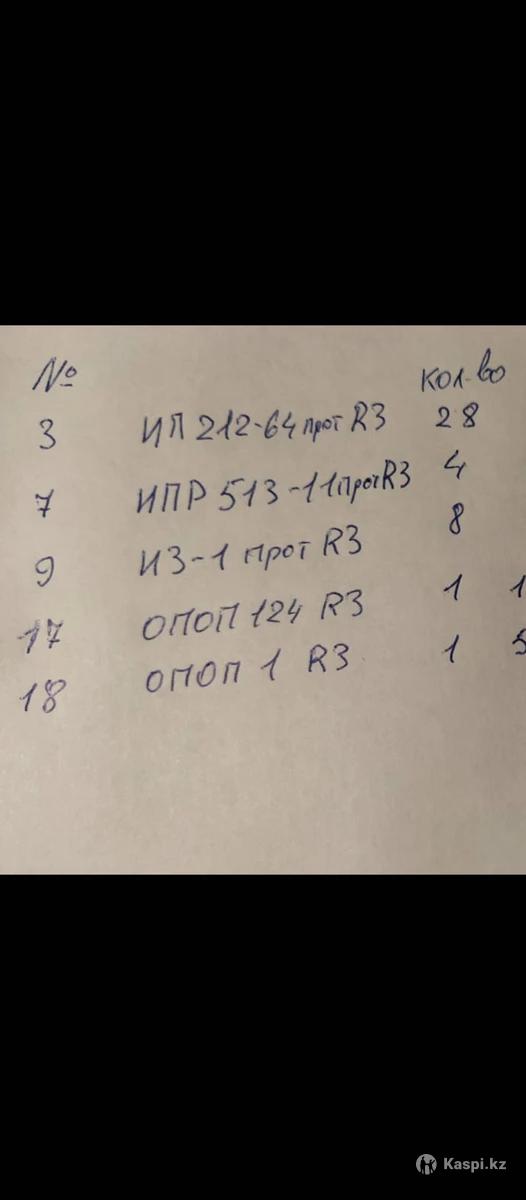 № кол-во
3 ИП 212-64 прот R3 28
7 ИПР 513-11 прот R3 4
9 ИЗ-1 прот R3 8
17 ОПОП 124 R3 1 1
18 ОПОП 1 R3 1 5
Kaspi.kz